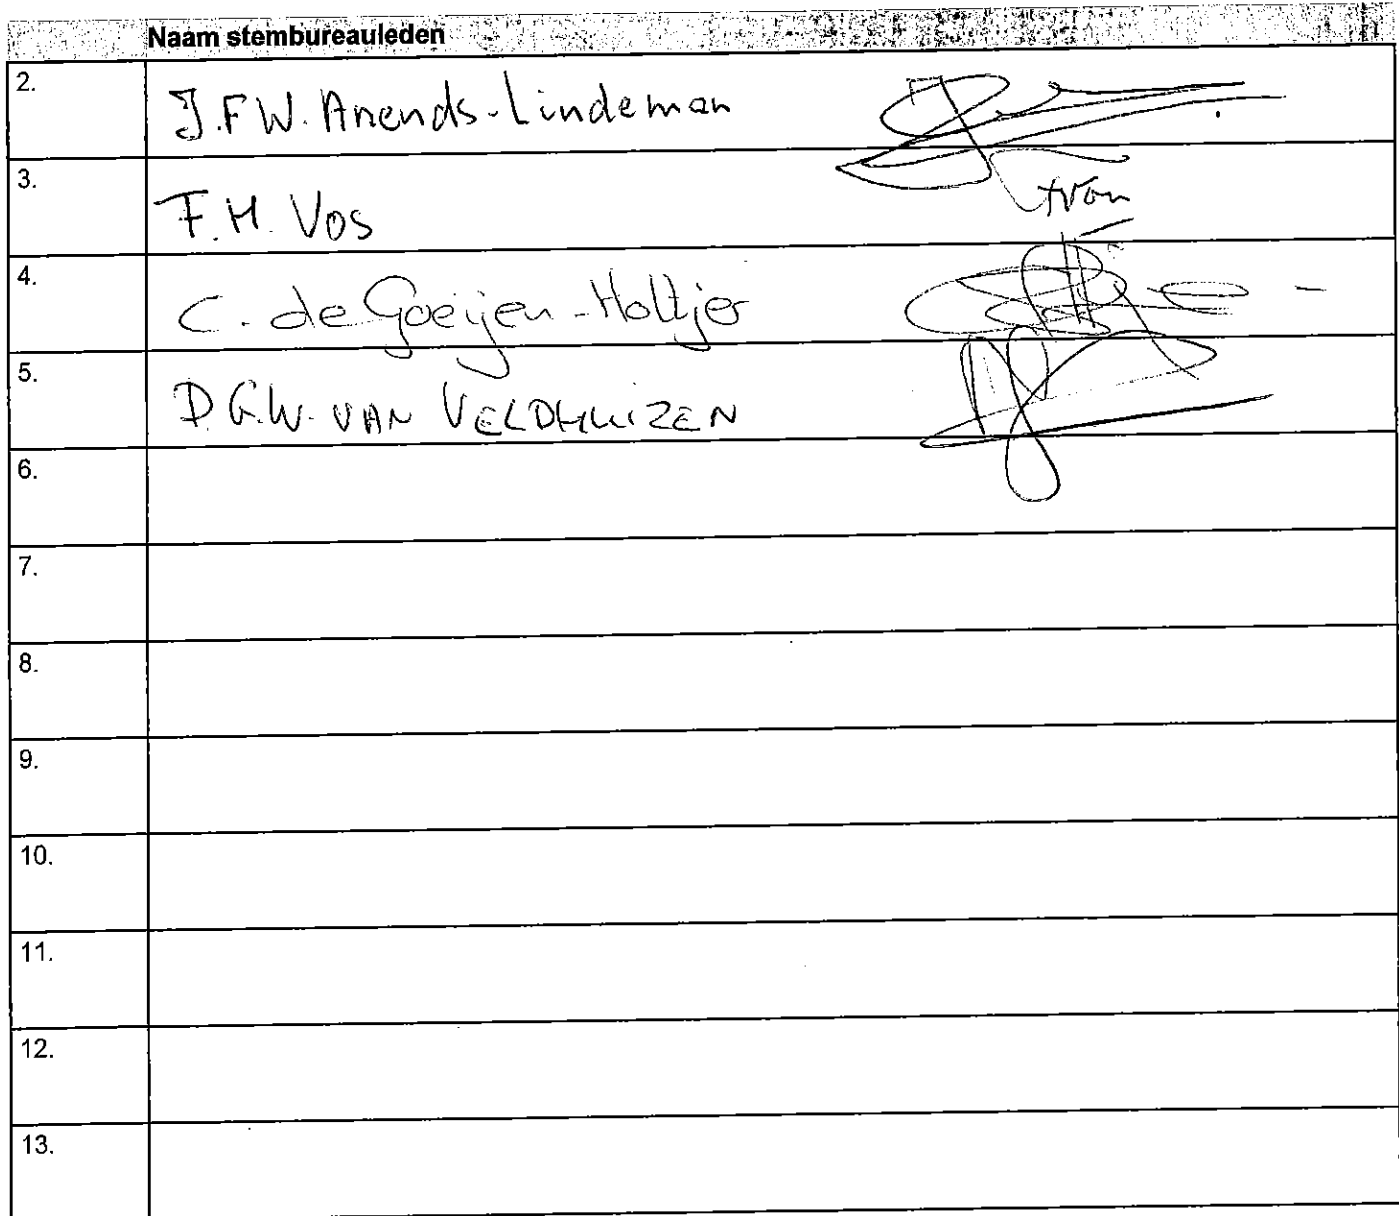 Naam stembureauleden
2. J.F.W. Arends-Lindeman
3. F.H. Vos
4. C. de Goeijen-Holtjer
5. D.G.W. VAN VELDHUIZEN
6.
7.
8.
9.
10.
11.
12.
13.